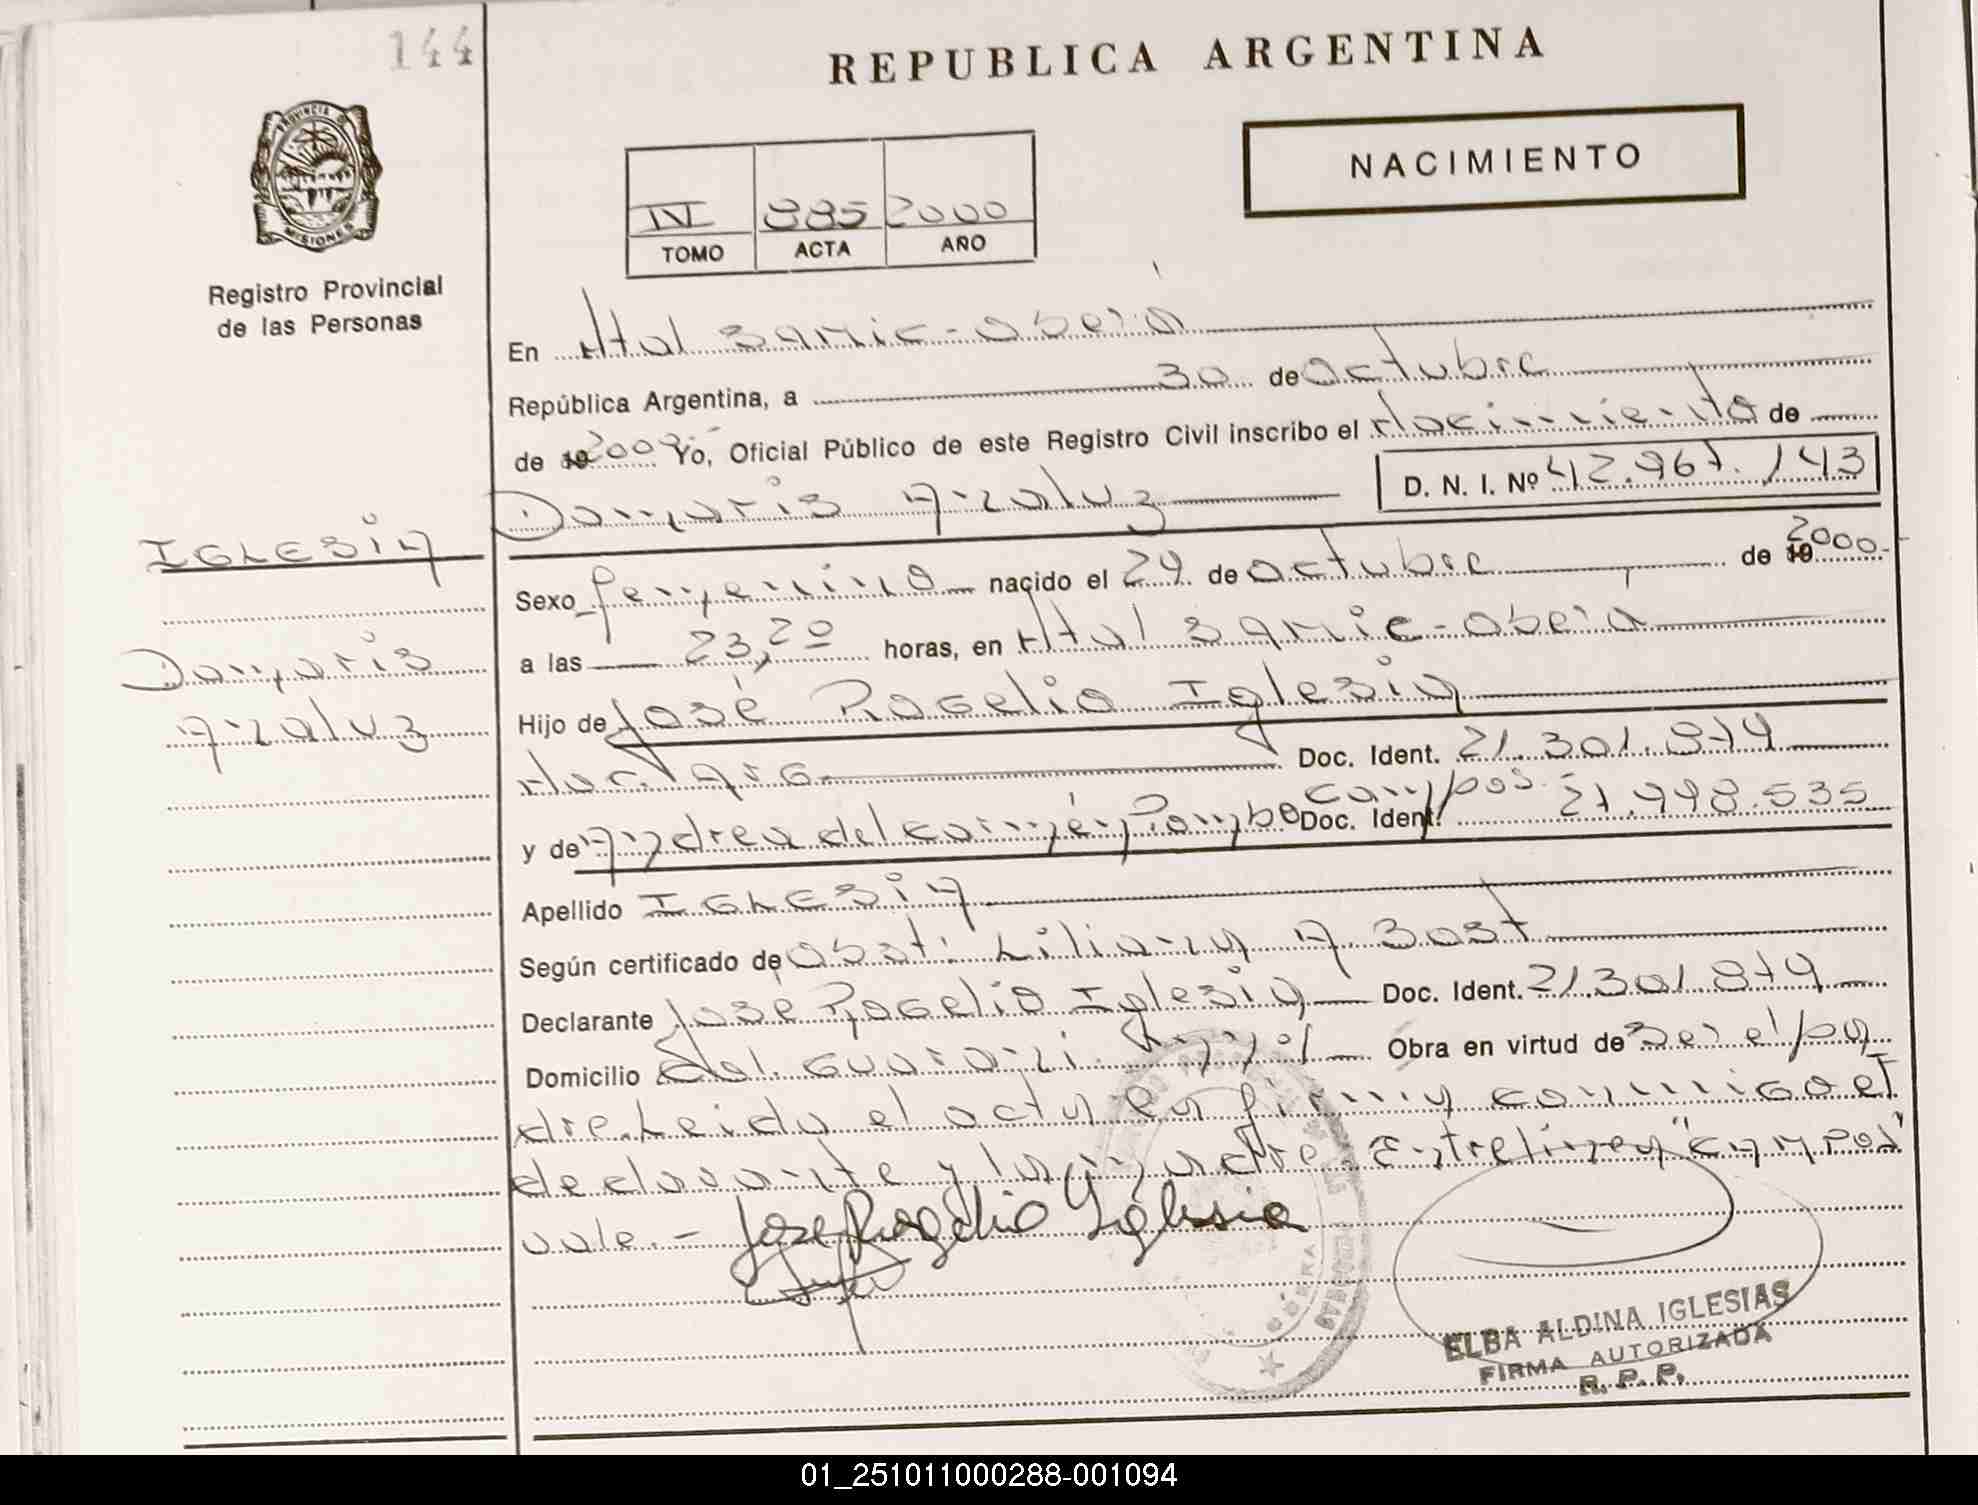 144
REPUBLICA ARGENTINA
PROVINCIA DE
MISIONES
Registro Provincial
de las Personas
NACIMIENTO
IV 885 2000
TOMO ACTA AÑO
En Htal Samic - Oberá
República Argentina, a 30 de Octubre
de 19 2000 Yo, Oficial Público de este Registro Civil inscribo el Nacimiento de
Damaris Analuz D. N. I. Nº 42.967.143
IGLESIA
Damaris
Analuz
Sexo femenino nacido el 29 de Octubre de 19 2000
a las 23,20 horas, en Htal Samic - Oberá
Hijo de José Rogelio Iglesia
Nac. Arg. Doc. Ident. 21.301.879
campos
y de Andrea del Carmen Pombo Doc. Ident. 21.998.535
Apellido IGLESIA
Según certificado de Obst. Liliana A. Bast
Declarante José Rogelio Iglesia Doc. Ident. 21.301.879
Domicilio Gdor. Guarani Obra en virtud de Ser el pa
dre. Leida el acta la firma conmigo el
declarante y la madre. Entrelinea "campos"
vale. - Jose Rogelio Iglesia
ELBA ALDINA IGLESIAS
FIRMA AUTORIZADA
R. P. P.
01_251011000288-001094